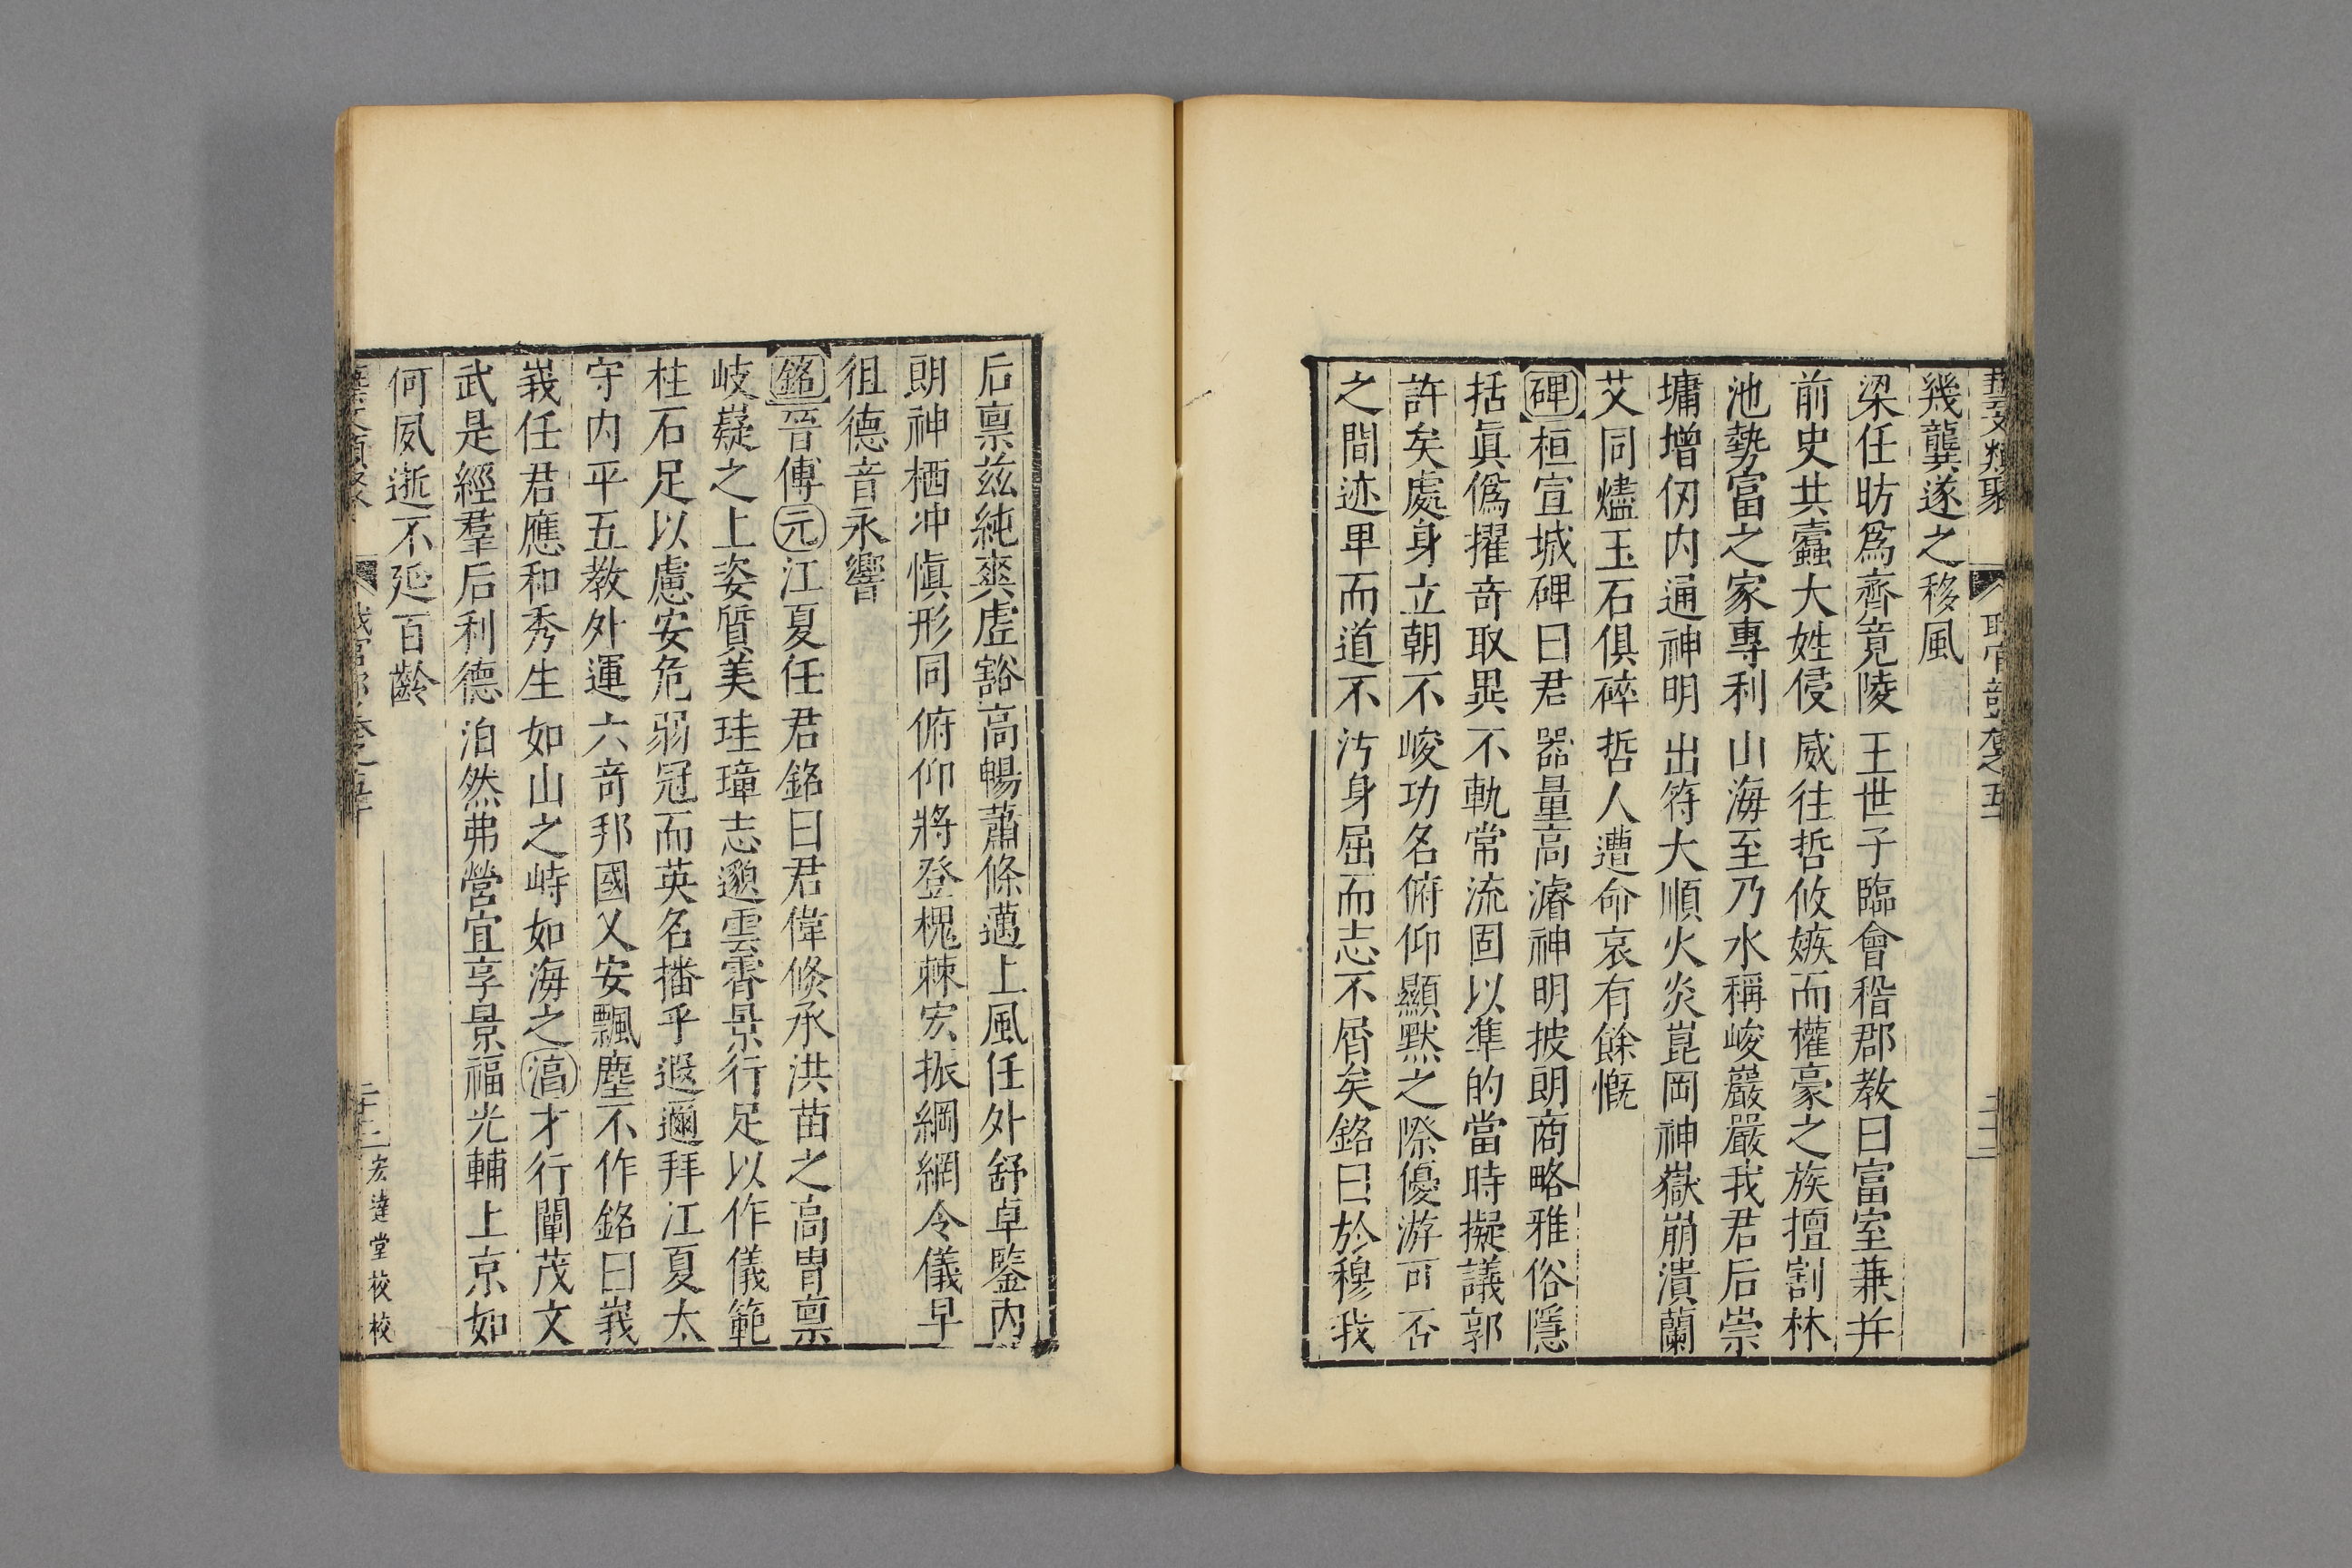 藝文類聚 職官部卷之五十 二十二
幾龔遂之移風
梁任昉爲齊竟陵王世子臨會稽郡教曰富室兼并
前史共蠹大姓侵威往哲攸嫉而權豪之族擅割林
池勢富之家專利山海至乃水稱峻巖巖我君后崇
墉增仞内通神明出符大順火炎崑岡神嶽崩潰蘭
艾同燼玉石俱碎哲人遭命哀有餘慨
碑桓宣城碑曰君器量高濬神明披朗商略雅俗隱
括眞僞擢奇取異不軌常流固以準的當時擬議郭
許矣處身立朝不峻功名俯仰顯默之際優游可否
之間迹卑而道不汚身屈而志不屑矣銘曰於穆我
后禀茲純爽虛豁高暢蕭條邁上風任外舒卓鑒内
朗神栖冲愼形同俯仰將登槐棘宏振綱網令儀早
徂德音永響
銘晉傅元江夏任君銘曰君偉倏承洪苗之高冑禀
岐嶷之上姿質美珪璋志邈雲霄景行足以作儀範
柱石足以慮安危弱冠而英名播乎遐邇拜江夏太
守内平五教外運六奇邦國乂安飄塵不作銘曰峩
峩任君應和秀生如山之峙如海之渟才行闡茂文
武是經羣后利德泊然弗營宜享景福光輔上京如
何夙逝不延百齡
藝文類聚 職官部卷之五十 二十二 宏達堂校